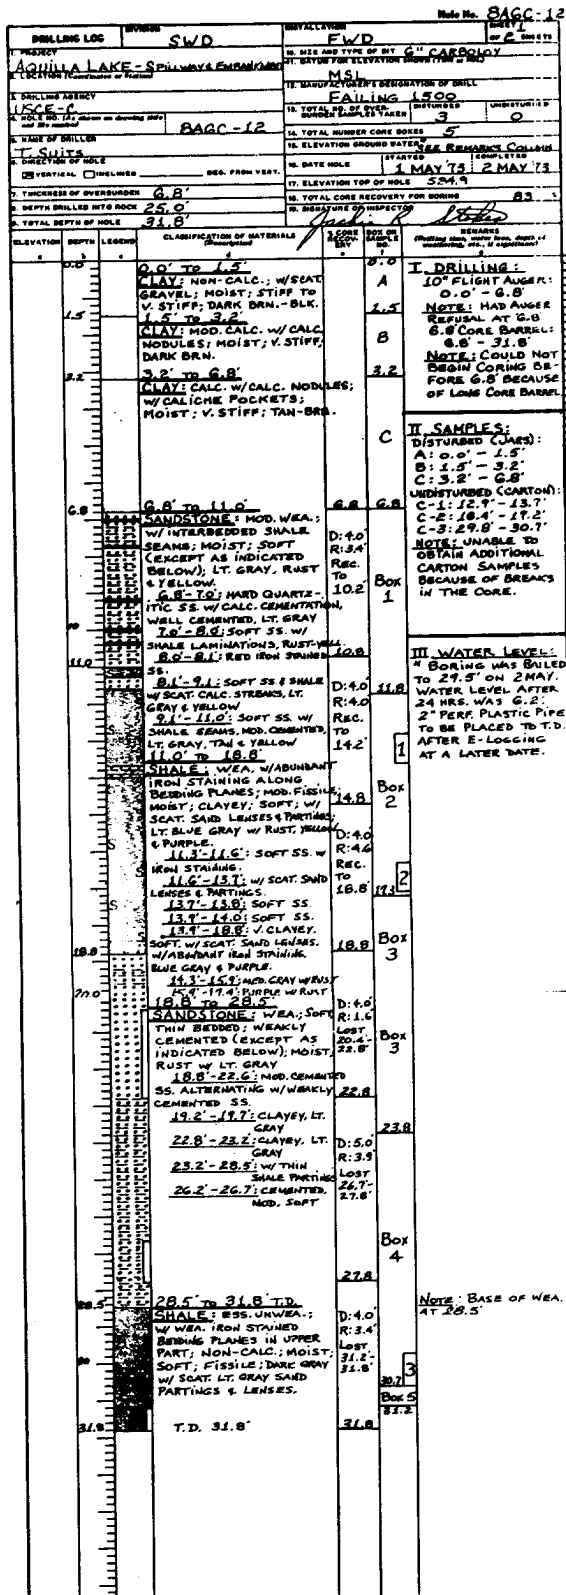 Hole No. 8AGC-12
DRILLING LOG
DIVISION
SWD
INSTALLATION
FWD
SHEET 1
OF 2 SHEETS
1. PROJECT
AQUILLA LAKE - SPILLWAY & EMBANKMENT
2. LOCATION (Coordinates or Station)
3. DRILLING AGENCY
USCE-C
4. HOLE NO. (As shown on drawing title and file number)
8AGC-12
5. NAME OF DRILLER
T. SUITS
6. DIRECTION OF HOLE
VERTICAL INCLINED DEG. FROM VERT.
7. THICKNESS OF OVERBURDEN 6.8'
8. DEPTH DRILLED INTO ROCK 25.0'
9. TOTAL DEPTH OF HOLE 31.8'
10. SIZE AND TYPE OF BIT 6" CARBOLOY
11. DATUM FOR ELEVATION SHOWN
MSL
12. MANUFACTURER'S DESIGNATION OF DRILL
FAILING 1500
13. TOTAL NO. OF OVERBURDEN SAMPLES TAKEN
DISTURBED
3
UNDISTURBED
0
14. TOTAL NUMBER CORE BOXES 5
15. ELEVATION GROUND WATER SEE REMARKS COLUMN
16. DATE HOLE
STARTED
1 MAY 73
COMPLETED
2 MAY 73
17. ELEVATION TOP OF HOLE 534.9
18. TOTAL CORE RECOVERY FOR BORING 83
19. SIGNATURE OF INSPECTOR
Jackie R. Stokes
ELEVATION
DEPTH
LEGEND
CLASSIFICATION OF MATERIALS
(Description)
% CORE RECOVERY
BOX OR SAMPLE NO.
REMARKS
(Drilling time, water loss, depth of weathering, etc., if significant)
0.0
0.0' TO 1.5'
CLAY: NON-CALC.; W/SCAT.
GRAVEL; MOIST; STIFF TO
V. STIFF; DARK BRN.-BLK.
1.5
1.5' TO 3.2'
CLAY: MOD. CALC. W/ CALC.
NODULES; MOIST; V. STIFF;
DARK BRN.
3.2
3.2' TO 6.8'
CLAY: CALC. W/CALC. NODULES;
W/CALICHE POCKETS;
MOIST; V. STIFF; TAN-BRN.
6.8
6.8' TO 11.0'
SANDSTONE: MOD. WEA.;
W/ INTERBEDDED SHALE
SEAMS; MOIST; SOFT
(EXCEPT AS INDICATED
BELOW); LT. GRAY, RUST
& YELLOW.
6.8'-7.0': HARD QUARTZ-
ITIC SS. W/ CALC. CEMENTATION,
WELL CEMENTED, LT. GRAY
7.0'-8.0': SOFT SS. W/
SHALE LAMINATIONS, RUST-YELL.
8.0'-8.1': RED IRON STAINED
SS.
8.1'-9.1: SOFT SS & SHALE
W/ SCAT. CALC. STREAKS, LT.
GRAY & YELLOW
9.1'-11.0': SOFT SS. W/
SHALE SEAMS, MOD. CEMENTED,
LT. GRAY, TAN & YELLOW
10
11.0
11.0' TO 18.8'
SHALE: WEA. W/ABUNDANT
IRON STAINING ALONG
BEDDING PLANES; MOD. FISSILE;
MOIST; CLAYEY; SOFT; W/
SCAT. SAND LENSES & PARTINGS;
LT. BLUE GRAY W/ RUST, YELLOW
& PURPLE.
11.3'-11.6': SOFT SS. W/
IRON STAINING.
11.6'-13.7': W/ SCAT. SAND
LENSES & PARTINGS.
13.7'-13.8': SOFT SS.
13.9'-14.0: SOFT SS.
13.9'-18.8': V. CLAYEY,
SOFT. W/ SCAT. SAND LENSES.
W/ABUNDANT IRON STAINING.
BLUE GRAY & PURPLE.
14.3'-15.9': MED. GRAY W/RUST
15.9'-17.4': PURPLE W/RUST
18.8
20.0
18.8' TO 28.5'
SANDSTONE: WEA.; SOFT;
THIN BEDDED; WEAKLY
CEMENTED (EXCEPT AS
INDICATED BELOW); MOIST;
RUST W/ LT. GRAY
18.8'-22.6': MOD. CEMENTED
SS. ALTERNATING W/WEAKLY
CEMENTED SS.
19.2'-19.7': CLAYEY, LT.
GRAY
22.8'-23.2': CLAYEY, LT.
GRAY
23.2'-28.5': W/ THIN
SHALE PARTINGS
26.2'-26.7': CEMENTED,
MOD. SOFT
28.5
28.5' TO 31.8' T.D.
SHALE: ESS. UNWEA.;
W/ WEA. IRON STAINED
BEDDING PLANES IN UPPER
PART; NON-CALC.; MOIST;
SOFT; FISSILE; DARK GRAY
W/ SCAT. LT. GRAY SAND
PARTINGS & LENSES.
30
31.8
T.D. 31.8'
6.8
D: 4.0
R: 3.4
REC.
TO
10.2'
10.8
D: 4.0
R: 4.0
REC.
TO
14.2'
14.8
D: 4.0
R: 4.6
REC.
TO
18.8'
18.8
D: 4.0
R: 1.6
LOST
20.4-
22.8'
22.8
D: 5.0
R: 3.9
LOST
26.7'-
27.8'
27.8
D: 4.0
R: 3.4
LOST
31.2'-
31.8'
31.8
0.0
A
1.5
B
3.2
C
6.8
Box
1
11.8
1
Box
2
2
17.3
Box
3
Box
3
23.8
Box
4
3
30.7
Box 5
31.2
I. DRILLING:
10" FLIGHT AUGER:
0.0' - 6.8'
NOTE: HAD AUGER
REFUSAL AT 6.8'
6.8' CORE BARREL:
6.8' - 31.8'
NOTE: COULD NOT
BEGIN CORING BE-
FORE 6.8' BECAUSE
OF LONG CORE BARREL
II. SAMPLES:
DISTURBED (JARS):
A: 0.0' - 1.5'
B: 1.5' - 3.2'
C: 3.2' - 6.8'
UNDISTURBED (CARTON):
C-1: 12.9' - 13.7'
C-2: 16.4' - 17.2'
C-3: 29.8' - 30.7'
NOTE: UNABLE TO
OBTAIN ADDITIONAL
CARTON SAMPLES
BECAUSE OF BREAKS
IN THE CORE.
III. WATER LEVEL:
" BORING WAS BAILED
TO 29.5' ON 2 MAY.
WATER LEVEL AFTER
24 HRS. WAS 6.2'.
2" PERF. PLASTIC PIPE
TO BE PLACED TO T.D.
AFTER E-LOGGING
AT A LATER DATE.
NOTE: BASE OF WEA.
AT 28.5'